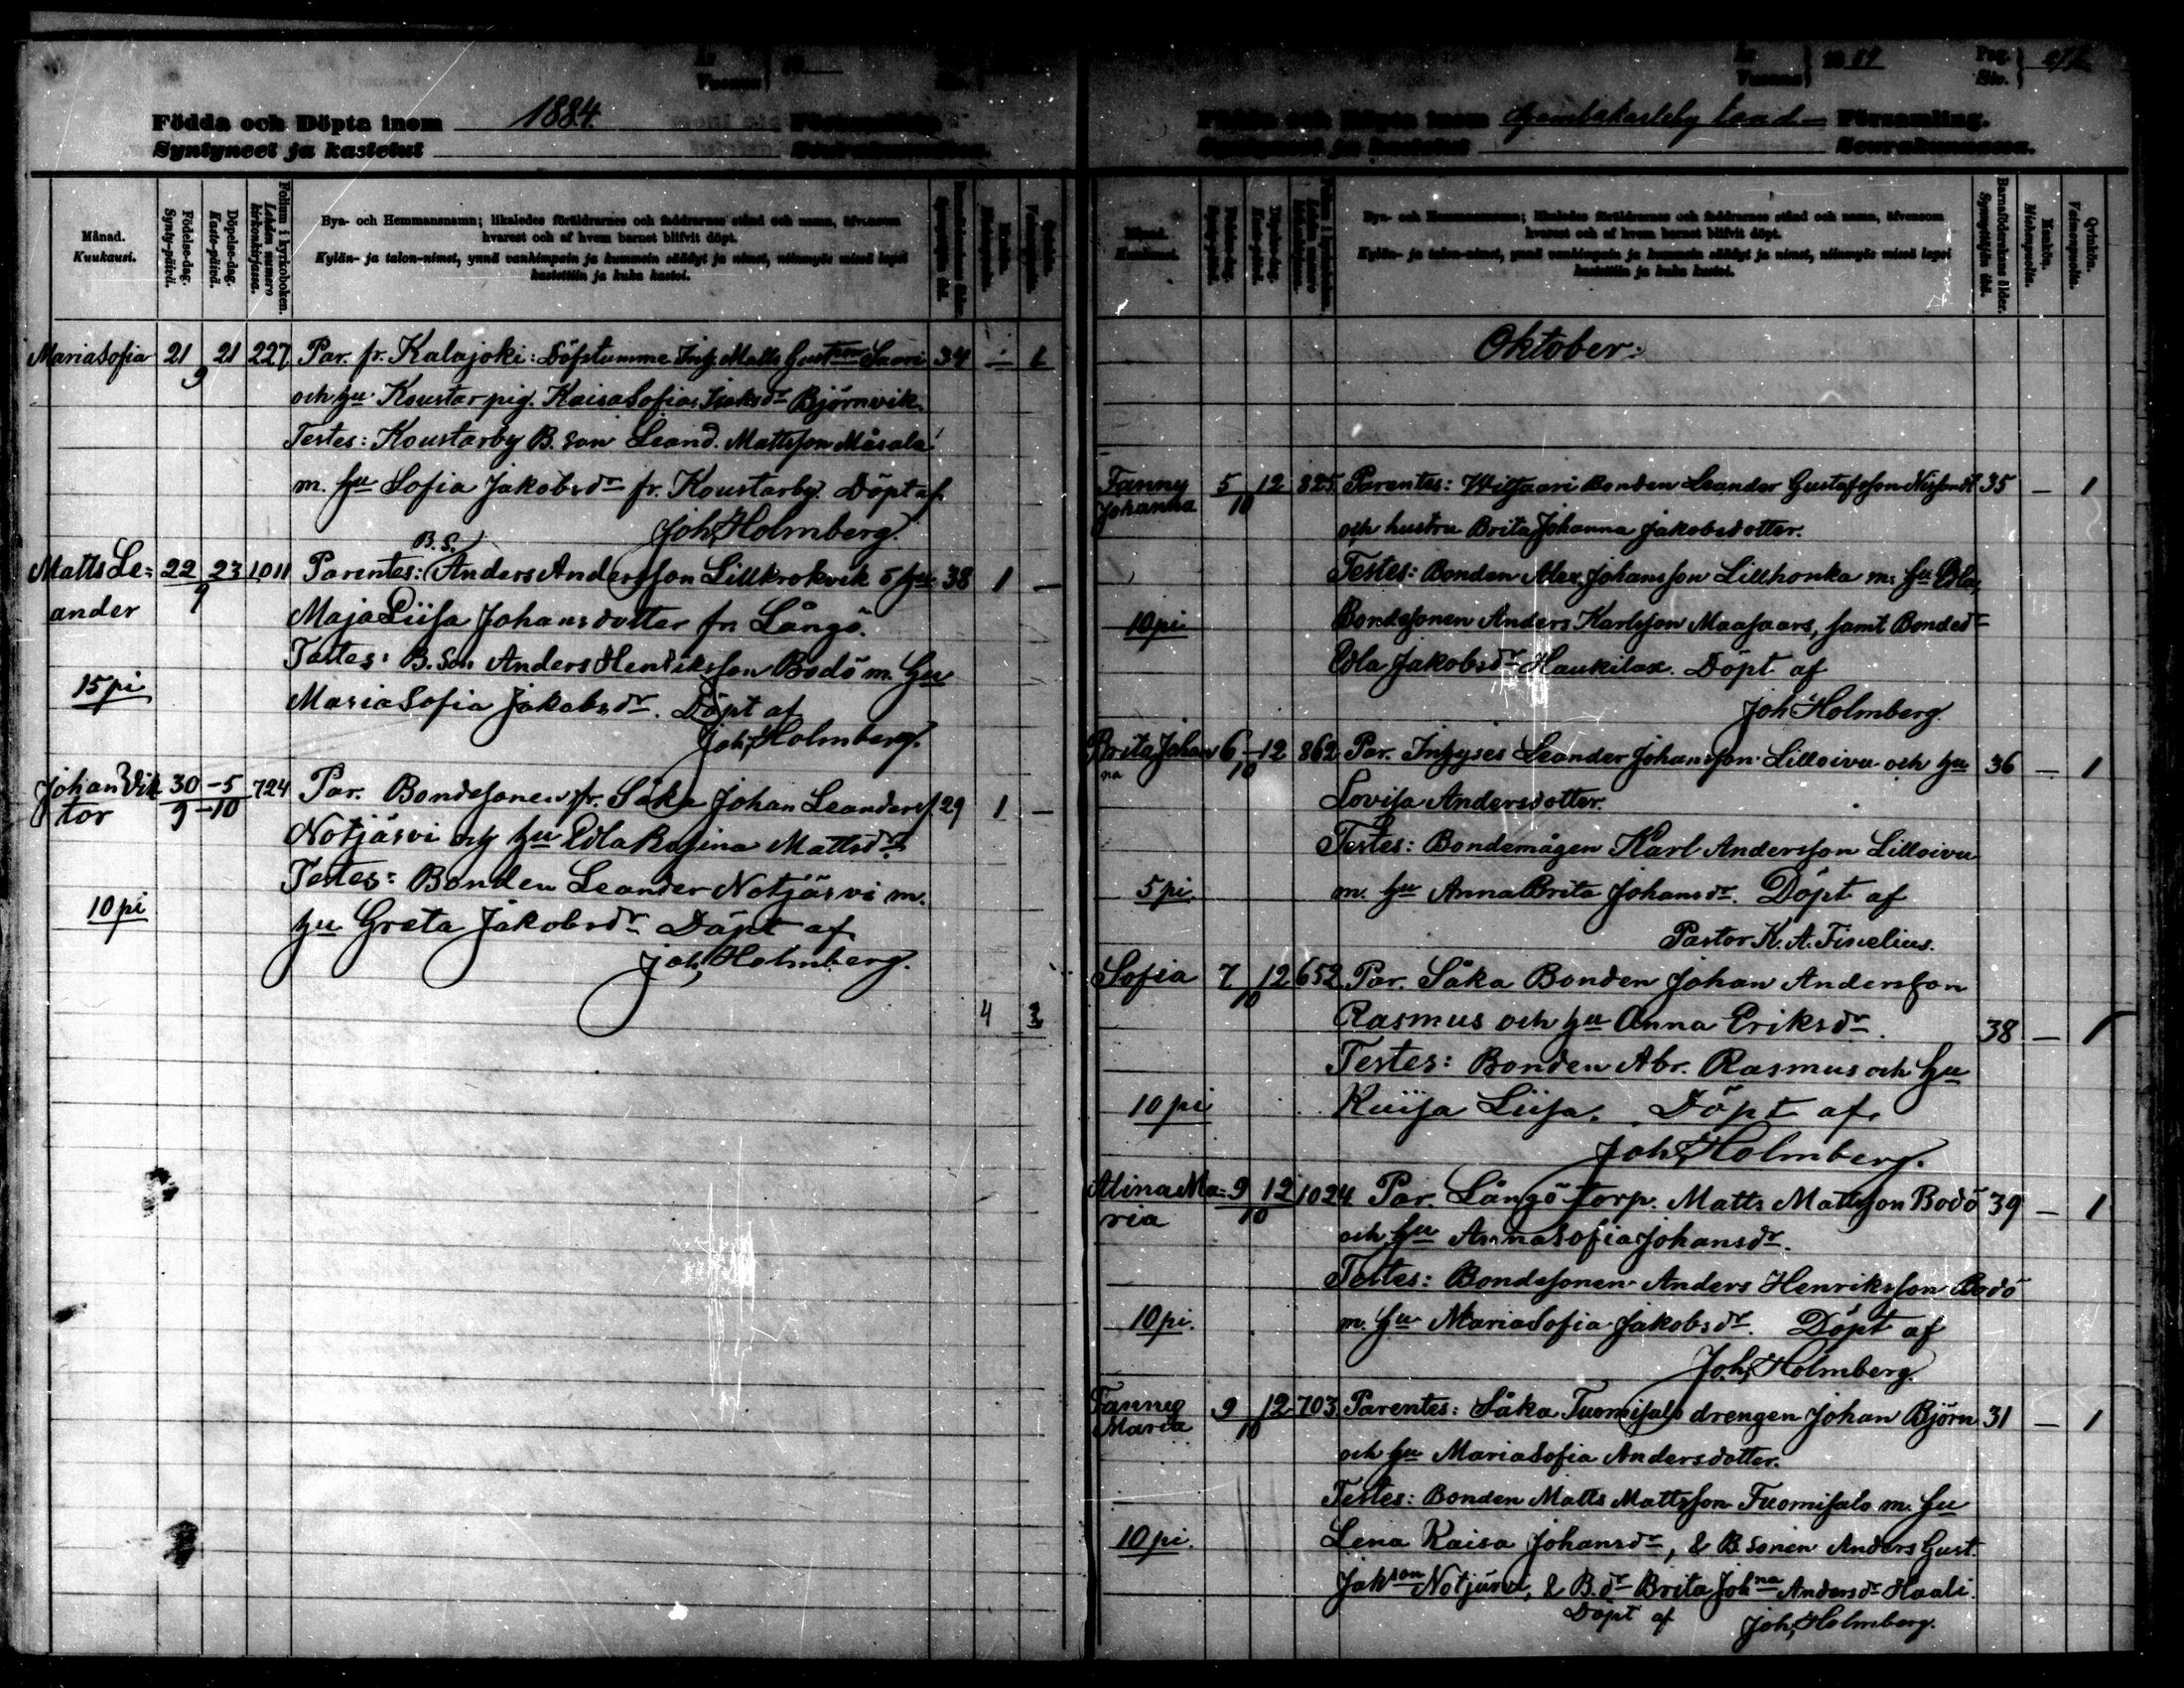 Födda och Döpta inom 1884.
Syntyneet ja kastetut
Månad.
Kuukausi.
Födelse-dag.
Synty-päivä.
Döpelse-dag.
Kaste-päivä.
Folium i kyrkoboken.
Lehden numero
kirkonkirjassa.
Bya- och Hemmansnamn; likaledes föräldrarnes och faddrarnes stånd och namn, äfvensom
hvarest och af hvem barnet blifvit döpt.
Kylän- ja talon-nimet, ynnä vanhimpain ja kummein säädyt ja nimet, niinmyös missä lapsi
kastettiin ja kuka kastoi.
Maria Sofia 21 21 227 Par. fr. Kalajoki: Döfstumme Inh. Matts Gustson Saari 34 — 1
9
och hu Koustar pig. Kaisa Sofia Isaksdr Björnvik.
Testes: Koustarby B. son Leand. Mattsson Måsala
m. hu Sofia Jakobsdr fr. Koustarby. Döpt af
Joh. Holmberg.
B. S.
Matts Le= 22 23 1011 Parentes: Anders Andersson Lillkrokvik o hu 38 1 —
ander 9
Maja Liisa Johansdotter fr. Långö.
Testes: B. Son Anders Henriksson Bodö m. hu
15 pi
Maria Sofia Jakobsdr. Döpt af
Joh. Holmberg.
Johan Vik 30 – 5 724 Par. Bondesonen fr. Såka Johan Leanders. 29 1 —
tor 9 – 10
Notjärvi och hu Edla Rosina Mattsdr.
Testes: Bonden Leander Notjärvi m.
10 pi
hu Greta Jakobsdr Döpt af
Joh. Holmberg.
4 3
År
Vuonna 1884
Pag.
Siv.
Födda och Döpta inom Gamlakarleby land– Församling.
Syntyneet ja kastetut Seurakunnassa.
Månad.
Kuukausi.
Bya- och Hemmansnamn; likaledes föräldrarnes och faddrarnes stånd och namn, äfvensom
hvarest och af hvem barnet blifvit döpt.
Kylän- ja talon-nimet, ynnä vanhimpain ja kummein säädyt ja nimet, niinmyös missä lapsi
kastettiin ja kuka kastoi.
Barnaföderskans ålder.
Synnyttäjän ikä.
Mankön.
Miehenpuolta.
Qvinkön.
Vaimonpuolta.
Oktober.
Fanny 5 12 825 Parentes: Bonden Leander Gustafsson 35 — 1
Johanna 10
och hustru Brita Johanna Jakobsdotter.
Testes: Bonden Alex. Johansson Lillhonka m. hu Edla,
10 pi
Bondesonen Anders Karlsson Maasaars, samt Bondedr
Edla Jakobsdr Haukilax. Döpt af
Joh. Holmberg.
Brita Johan 6 – 12 862 Par. Inhyses Leander Johansson Lilloivu och hu 36 — 1
na 10
Lovisa Andersdotter.
Testes: Bondemågen Karl Andersson Lilloivu
5 pi.
m. hu Anna Brita Johansdr. Döpt af
Pastor K. A. Finelius.
Sofia 7 12 652 Par. Såka Bonden Johan Andersson
10
Rasmus och hu Anna Eriksdr. 38 — 1
Testes: Bonden Abr. Rasmus och hu
10 pi
Kaisa Liisa. Döpt af
Joh. Holmberg.
Alina Ma= 9 12 1024 Par. Långö torp. Matts Mattsson Bodö 39 — 1
ria 10
och hu Anna Sofia Johansdr.
Testes: Bondesonen Anders Henriksson Bodö
10 pi.
m. hu Maria Sofia Jakobsdr. Döpt af
Joh. Holmberg.
Fanny 9 12 703 Parentes: Såka Tuomisalo drengen Johan Björn 31 — 1
Maria 10
och hu Maria Sofia Andersdotter.
Testes: Bonden Matts Mattsson Tuomisalo m. hu
10 pi.
Lena Kaisa Johansdr, & B. sonen Anders Gust.
Jakson Notjärvi, & B. dr Brita Johna Andersdr Haali.
Döpt af
Joh. Holmberg.